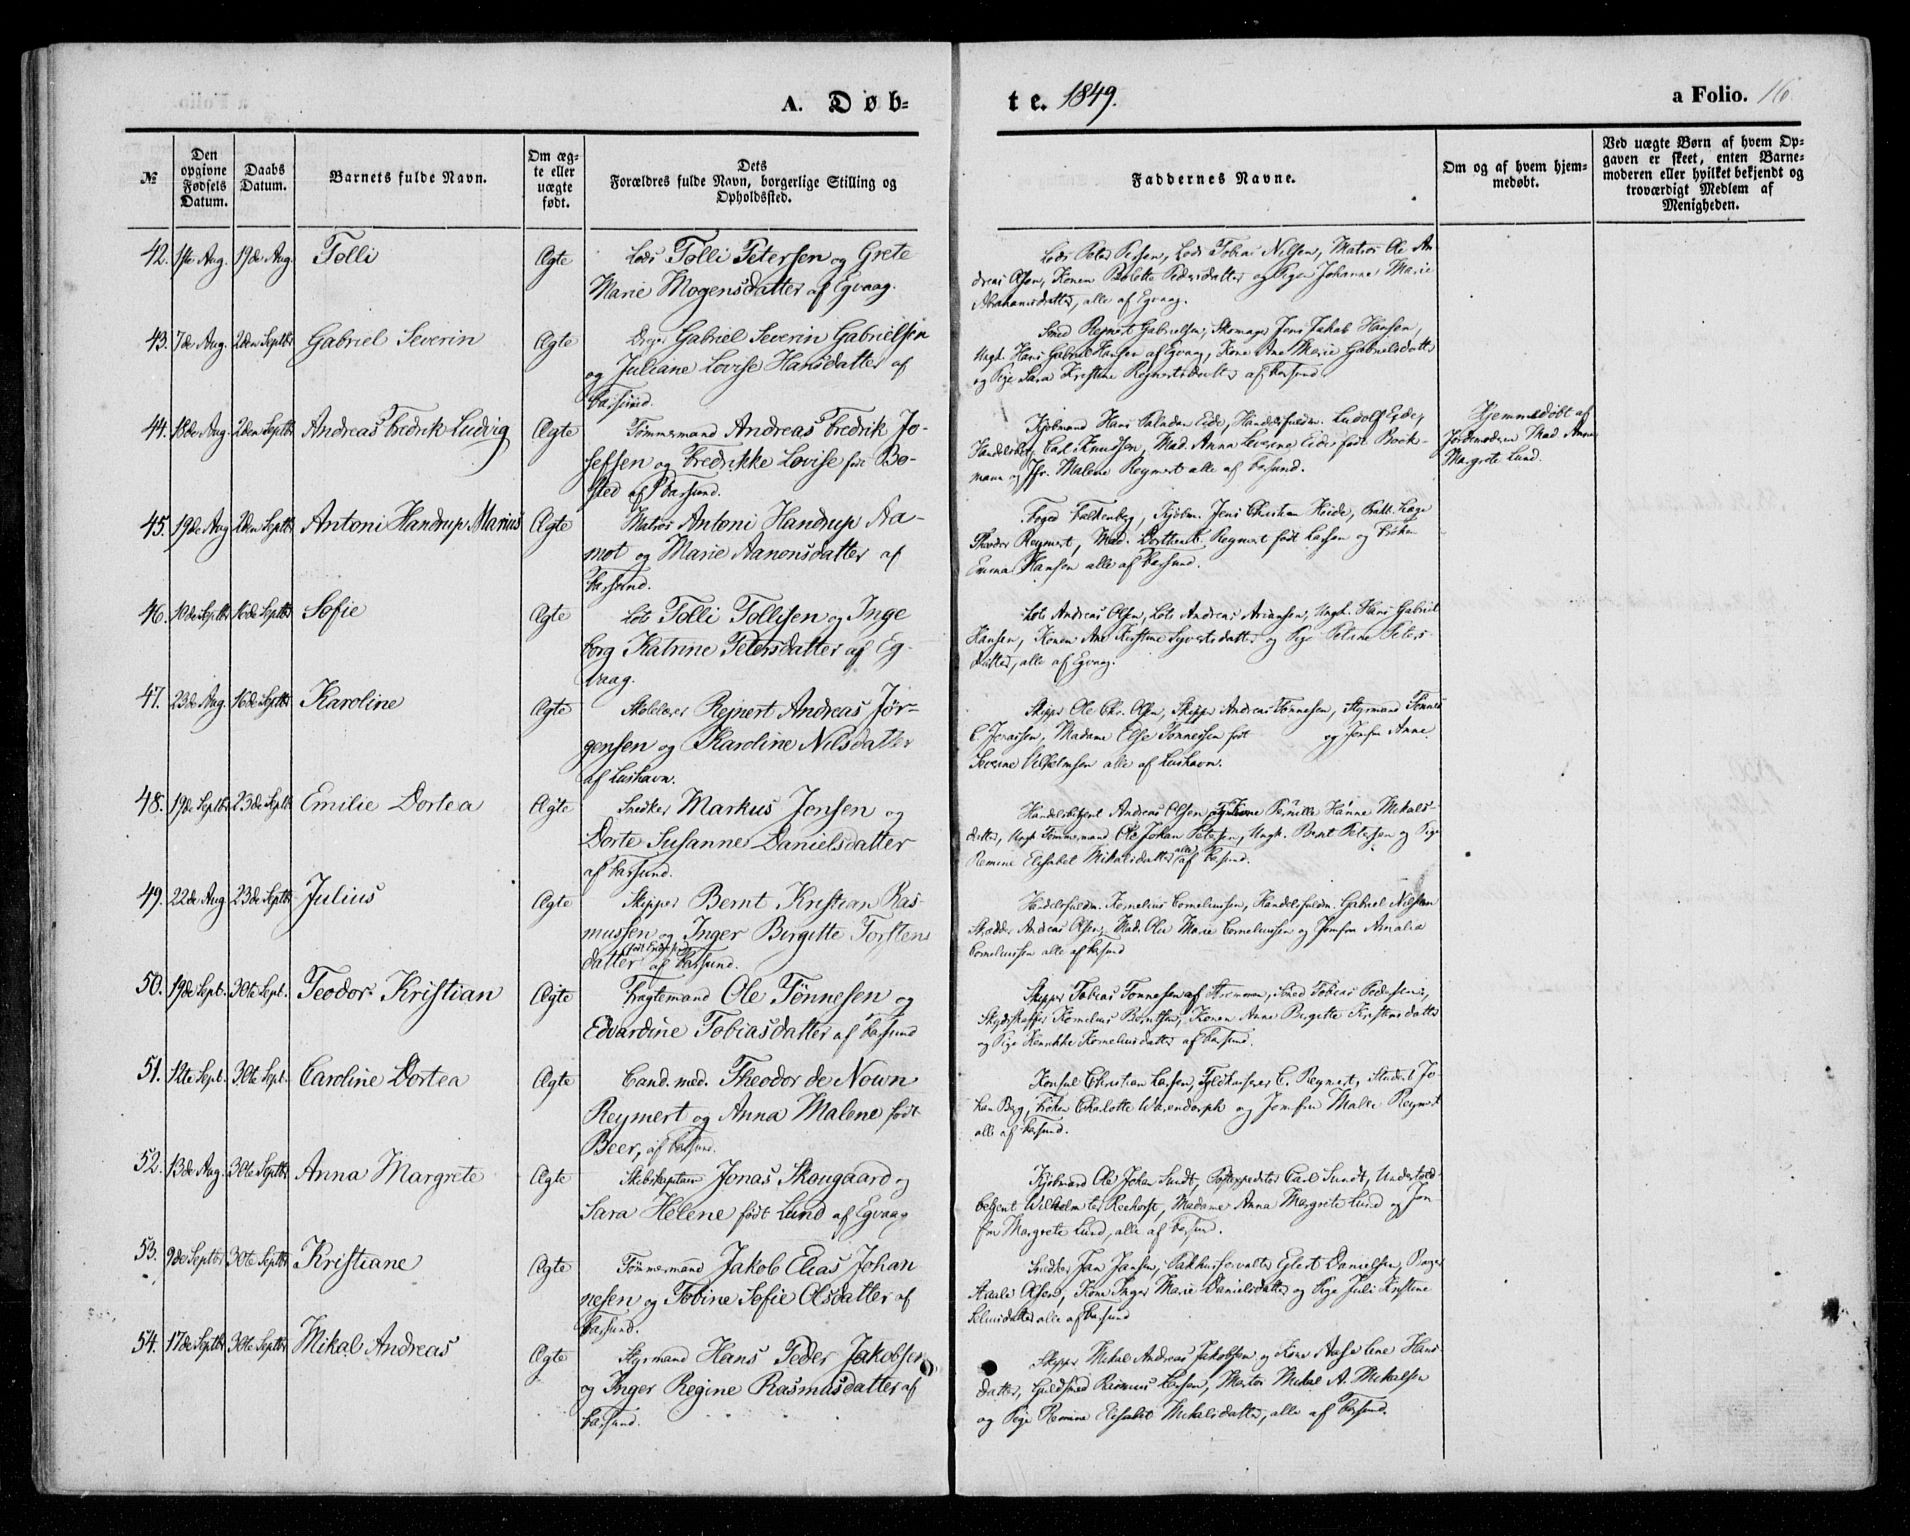 A. Døb-
te. 1849.
a Folio. 16.
№
Den opgivne Fødsels Datum.
Daabs Datum.
Barnets fulde Navn.
Om ægte eller uægte født.
Dets
Forældres fulde Navn, borgerlige Stilling og
Opholdssted.
Faddernes Navne.
Om og af hvem hjem-
medøbt.
Ved uægte Børn af hvem Op-
gaven er skeet, enten Barne-
moderen eller hvilket bekjendt og
troværdigt Medlem af
Menigheden.
42. 1ste Aug. 19de Aug. Tolli Ægte Lods Tolli Petersen og Grete
Marie Mogensdatter af Egvaag.
Lods Peder Nilsen, Lods Tobias Nilsen, Matros Ole An-
dreas Olsen, Konen Bolette Pedersdatter og Pige Johanne Marie
Abrahamsdatter, alle af Egvaag.
43. 7de Aug. 2den Septbr Gabriel Severin Ægte Gabriel Severin Gabrielsen
og Juliane Lovise Hansdatter af
Farsund.
Smed Rejnert Gabrielsen, Skomager Jens Jakob Hansen,
Ungk. Hans Gabriel Hansen af Egvaag, Kone Ane Marie Gabrielsdatter
og Pige Sara Kristine Rejnertsdatter af Farsund
44. 18de Aug. 2den Septbr Andreas Fredrik Ludvig Ægte Tømmermand Andreas Fredrik Jo-
sefsen og Fredrikke Lovise født Bo-
sted af Farsund.
Kjøbmand Hans Eide, Handelsfuldm. Ludolf Eide,
Handelsbetj. Carl Knudsen, Mad. Anna Severine Eide født Bock-
mann og Jfr. Malene Reymert alle af Farsund.
Hjemmedøbt af
Jordemoderen Mad Anna
Margrete Lund.
45. 19de Aug 2den Septbr Antoni Handrup Marius Ægte Matros Antoni Handrup Aa-
mot og Marie Aanensdatter af
Farsund.
Foged Falkenberg, Kjøbm. Jens Christian Reymert, Mad. Reymert født Larsen og Frøken
Emma Hansen alle af Farsund.
46. 10de Septbr 16de Septbr Sofie Ægte Lots Tolli Tollisen og Inge
borg Katrine Petersdatter af Eg-
vaag.
Lots Andreas Olsen, Lots Andreas Ariansen, Ungk. Hans Gabriel
Hansen, Konen Ane Kirstine Syvertsdatter og Pige Petrine Peters-
datter, alle af Egvaag.
47. 23de Aug. 16de Septbr Karoline Ægte Skolelærer Rejnert Andreas Jør-
gensen og Karoline Nilsdatter
af Lushavn.
Skipper Ole Chr. Olsen, Skipper Andreas Tønnesen, Styrmand Tønnes
C. Jonassen, Madame Else Tønnessen født og Jomfru Anne
Severine Vilhelmsen alle af Lushavn.
48. 19de Septbr 23de Septbr Emilie Dortea Ægte Snedker Markus Jensen og
Dorte Susanne Danielsdatter
af Farsund.
Handelsbetjent Andreas Olsen og Kone Pernille Hanne Mikals-
datter, Ungk. Tømmermand Ole Johan Petersen, Ungk. Bernt Petersen og Pige
Remine Elisabet Mikalsdatter alle af Farsund.
49. 22de Aug 23de Septbr Julius Ægte Skipper Bernt Kristian Ras-
mussen og Inger Birgitte Torstens
datter af Farsund.
Handelsfuldm. Kornelius Corneliussen, Handelsfuldm. Gabriel Nilsen
Skrædder Andreas Olsen, Mad. Olee Marie Corneliussen og Jomfru Amalia
Corneliussen alle af Farsund
50. 19de Sept. 30te Sept. Teodor Kristian Ægte Fragtemand Ole Tønnesen og
Edvardine Tobiasdatter af Farsund
Skipper Tobias Tønnesen af, Smed Tobias Pedersen,
Skydsskaffer Kornelius Berntsen, Konen Anne Birgitte Kristensdatter
og Pige Henrikke Korneliusdatter af Farsund.
51. 12te Sept. 30te Sept. Caroline Dortea Ægte Cand. med. Theodor de Nown
Reymert og Anna Malene født
Beer, af Farsund.
Konsul Christian Larsen, Toldkasserer C. Reymert, Student Jo-
han Berg, Frøken Charlotte Warendorph og Jomfru Malene Reymert
alle af Farsund.
52. 13de Aug. 30te Septbr Anna Margrete Ægte Skibskaptain Jonas Skougaard og
Sara Helene født Lund af Egvaag
Kjøbmand Ole Johan Sundt, Postexpeditør Carl Sundt, Undertold-
betjent Wilhelm ter Reehorst, Madame Anna Margrete Lund og Jom-
fru Margrete Lund, alle af Farsund.
53. 9de Septbr 30te Septbr Kristiane Ægte Tømmermand Jakob Elias Johan
nesen og Tobine Sofie Olsdatter af
Farsund.
Snedker Jan Jansen, Pakhusforvalter Eilert Danielsen, Bager
Olsen, Kone Inger Marie Danielsdatter og Pige Juli Kristine
alle af Farsund
54. 17de Septbr 30te Septbr Mikal Andreas Ægte Styrmand Hans Peder Jakobsen
og Inger Regine Rasmusdatter af
Farsund.
Skipper Mikal Andreas Jakobsen og Kone Aase Line Hans
datter, Guldsmed Rasmus Larsen, Matros Mikal A. Mikalsen
og Pige Remine Elisabet Mikalsdatter, alle af Farsund.